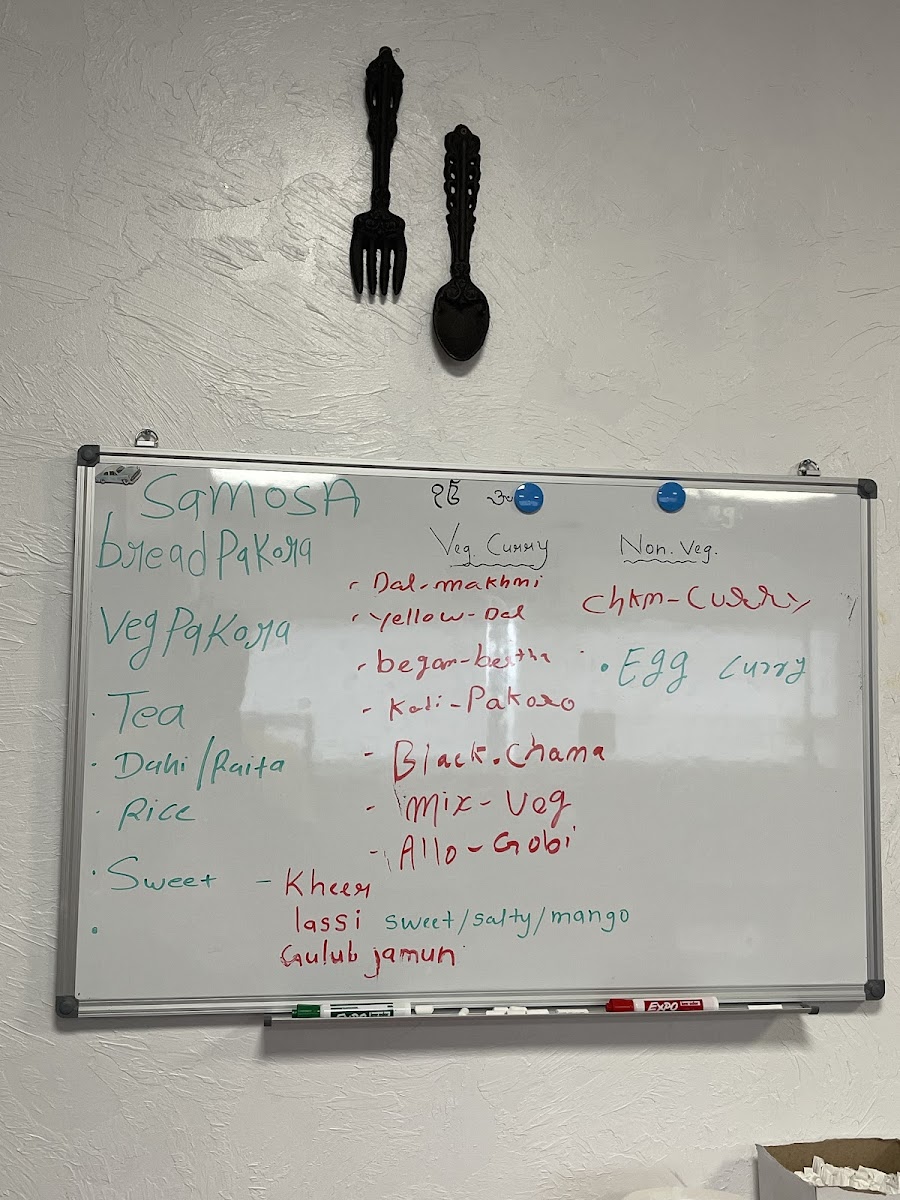 SamosA
bread Pakora
Veg Pakora
Tea
Dahi/Raita
Rice
Sweet - Kheer
lassi sweet/salty/mango
Gulub jamun
Veg. Curry
- Dal-makhmi
- Yellow-Dal
- began-bertha
- Kadi-Pakoro
- Black.Chana
- mix-veg
- Allo-Gobi
Non. Veg.
Chkm-Curry
• Egg Curry
EXPO
EXPO